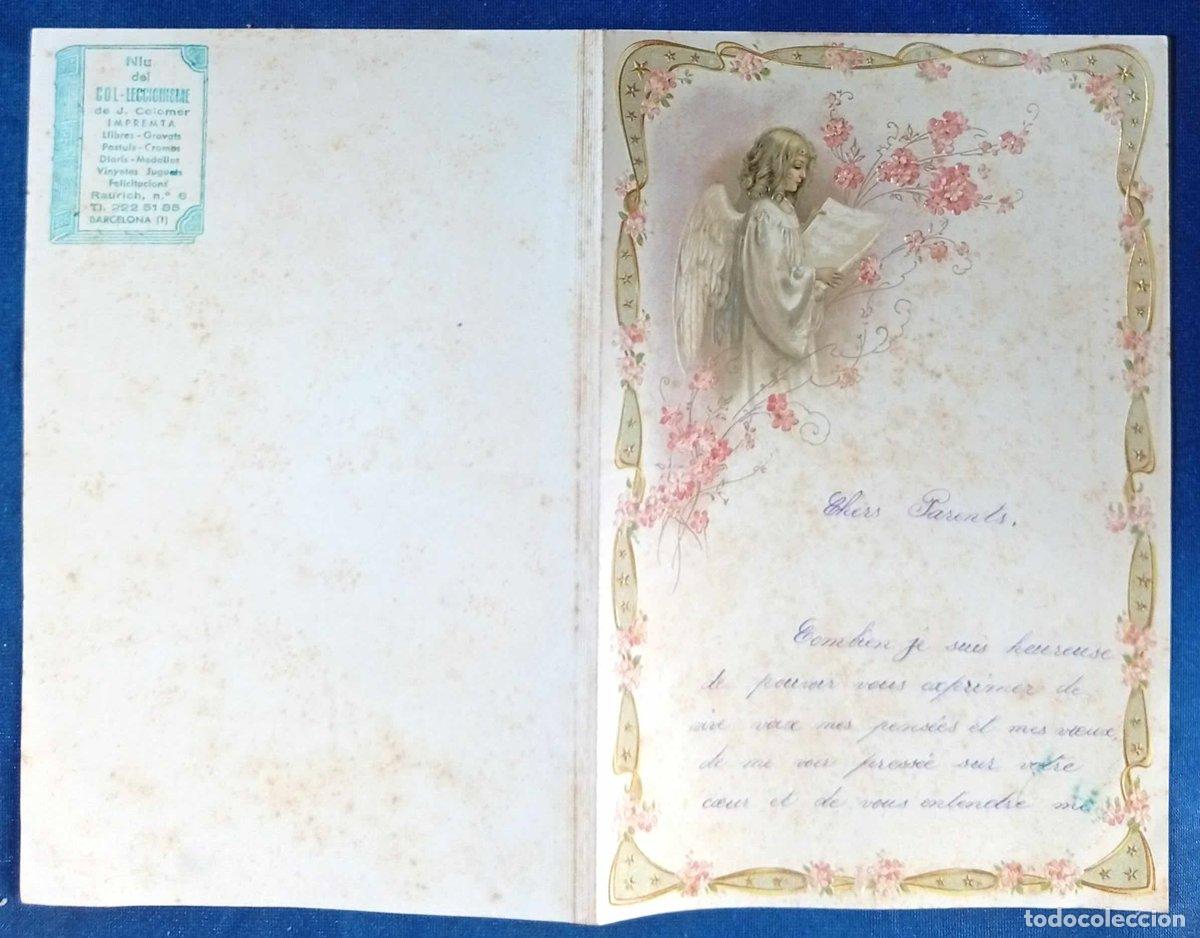 Niu
del
COL·LECCIONISME
de J. Colomer
IMPREMTA
Llibres - Gravats
Postals - Cromos
Diaris - Medalles
Vinyetes Juguets
Felicitacions
Raurich, n.º 6
Tl. 222 51 85
BARCELONA (1)
Chers Parents,
Combien je suis heureuse
de pouvoir vous exprimer de
vive voix mes pensées et mes vœux,
de me voir pressée sur votre
cœur et de vous entendre me
todocoleccion